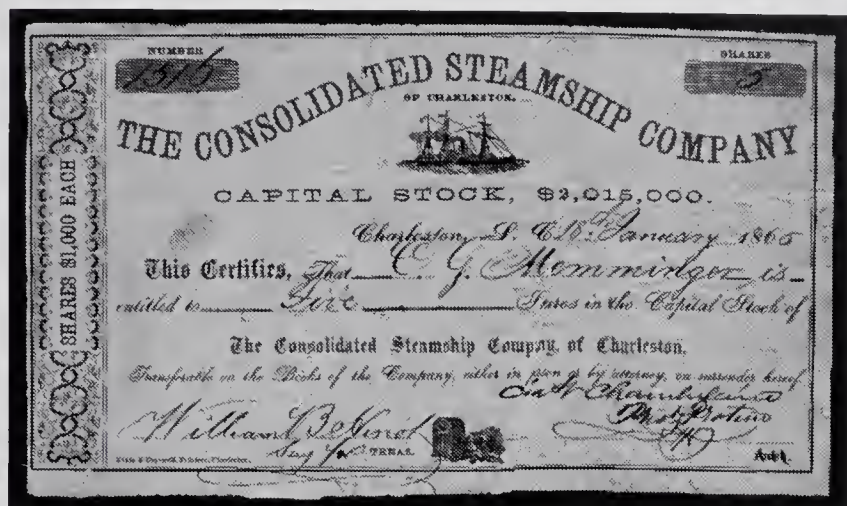 NUMBER
1316
SHARES
5
THE CONSOLIDATED STEAMSHIP COMPANY
OF CHARLESTON.
SHARES $1,000 EACH
CAPITAL STOCK, $2,015,000.
Charleston, S. C. 18 January 1865
This Certifies, That C G Memminger is
entitled to Five Shares in the Capital Stock of
The Consolidated Steamship Company, of Charleston,
Transferable on the Books of the Company, either in person or by attorney, on surrender hereof
William
TREAS.